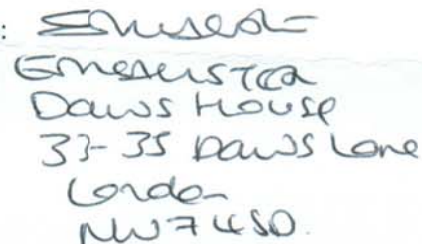 :
Daws House
33-35 Daws Lane
London
NW7 4SD.